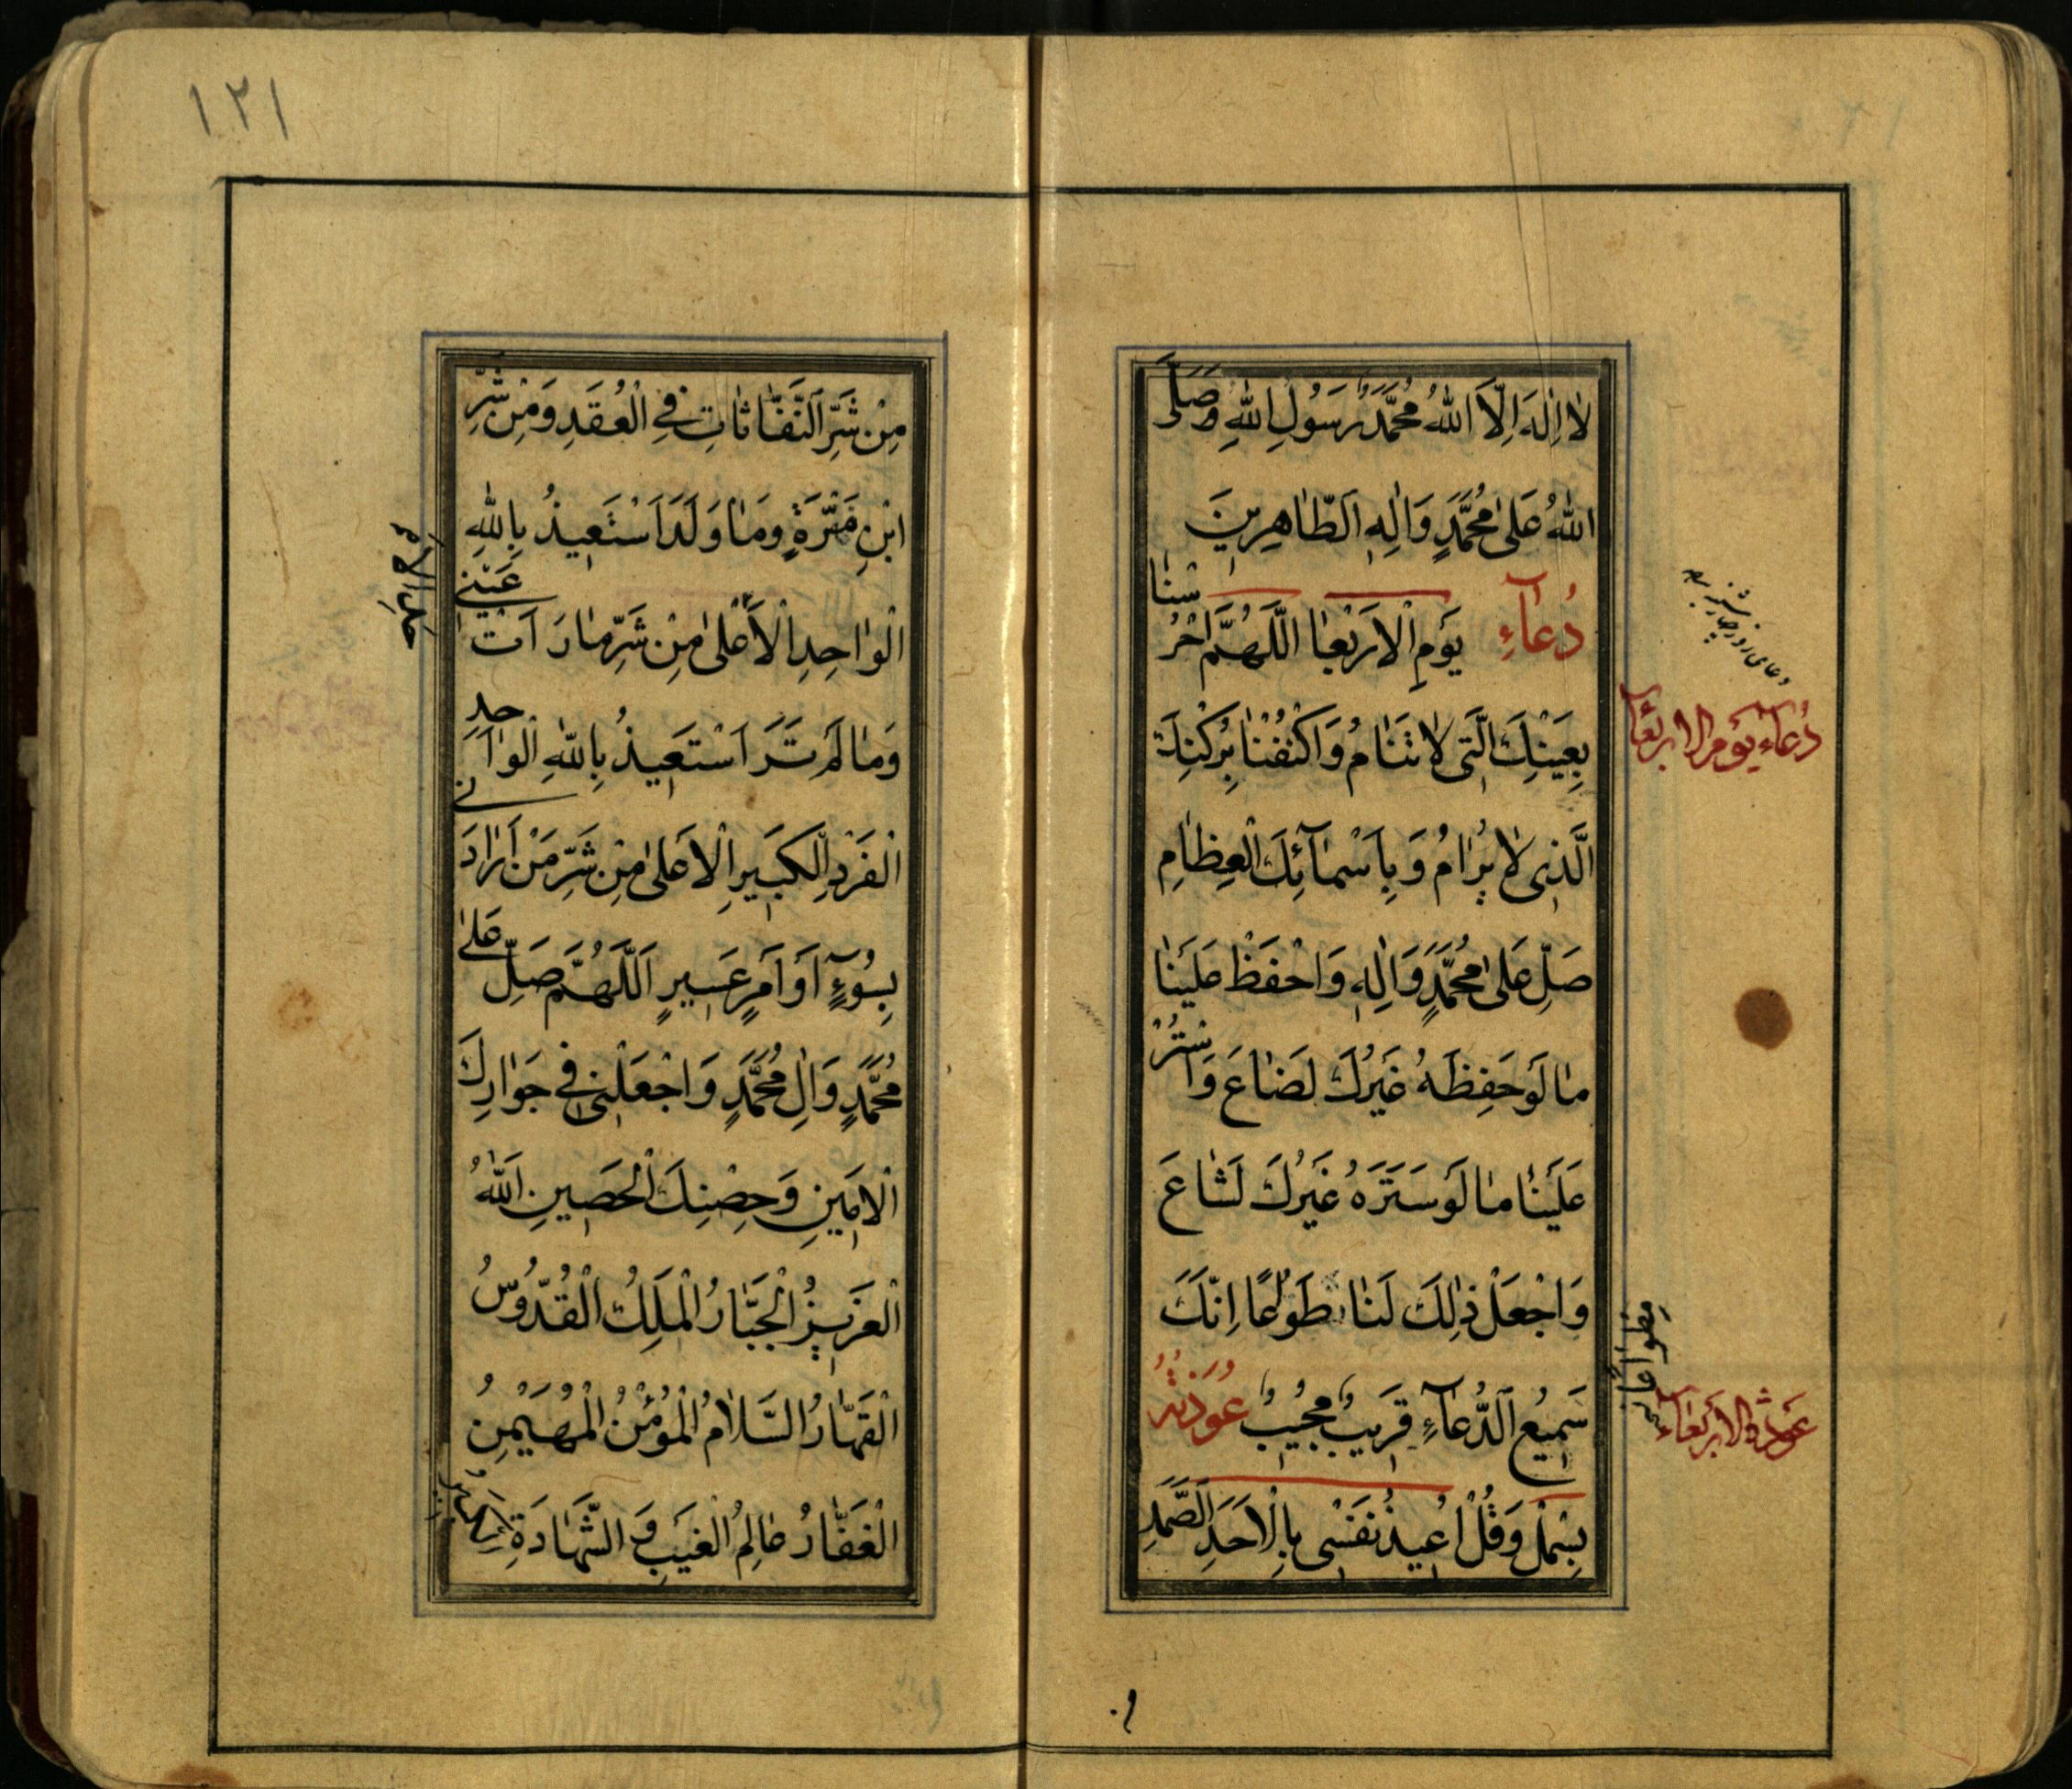 لا اِلٰهَ اِلَّا اللهُ مُحَمَّدٌ رَسُولِ اللهِ وَصَلَّى
اللهُ عَلىٰ مُحَمَّدٍ وَاٰلِهِ الطّاهِرينَ
دُعآءِ يَومِ الْاَرْبَعٰا اللَّهُمَّ احْرُسْنٰا
بِعَيْنِكَ الَّتى لا تَنٰامُ وَاكْنُفْنٰا بِرُكْنِكَ
الَّذى لا يُرٰامُ وَ بِاَسْمٰآئِكَ الْعِظٰامِ
صَلِّ عَلىٰ مُحَمَّدٍ وَاٰلِهِ وَاحْفَظْ عَلَيْنٰا
مٰا لَوْ حَفِظَهُ غَيْرُكَ لَضٰاعَ وَاسْتُرْ
عَلَيْنٰا مٰا لَوْ سَتَرَهُ غَيْرُكَ لَشٰاعَ
وَاجْعَلْ ذٰلِكَ لَنٰا مِطْوٰاعًا اِنَّكَ
سَميعُ الدُّعآءِ قَريبٌ مُجيبٌ عُوذَتُهُ
بِسْمَلْ وَقُلْ اُعيذُ نَفْسى بِالْاَحَدِ الصَّمَدِ
دعاى روز چهارشنبه
دُعآءِ يَوْمِ الاربَعٰا
مِطْوٰاعًا
عُوذَة الاَرْبَعٰآءِ
١٢١
مِنْ شَرِّ النَّفّٰاثٰاتِ فِى الْعُقَدِ وَمِنْ شَرِّ
ابْنِ قِتْرَةٍ وَمٰا وَلَدَ اَسْتَعيذُ بِاللهِ
الْوٰاحِدِ الْاَعْلىٰ مِنْ شَرِّ مٰا رَاَتْ عَيْنى
وَمٰا لَمْ تَرَ اَسْتَعيذُ بِاللهِ الْوٰاحِدِ
الْفَرْدِ الْكَبيرِ الْاَعْلىٰ مِنْ شَرِّ مَنْ اَرٰادَنى
بِسُوٓءٍ اَوْ اَمْرٍ عَسيرٍ اَللّٰهُمَّ صَلِّ عَلىٰ
مُحَمَّدٍ وَاٰلِ مُحَمَّدٍ وَاجْعَلْنى فى جَوٰارِكَ
الْاَمينِ وَحِصْنِكَ الْحَصينِ اللهُ
الْعَزيزُ الْجَبّٰارُ الْمَلِكُ الْقُدُّوسُ
الْقَهّٰارُ السَّلٰامُ الْمُؤْمِنُ الْمُهَيْمِنُ
الْغَفّٰارُ عٰالِمُ الْغَيْبِ وَ الشَّهٰادَةِ